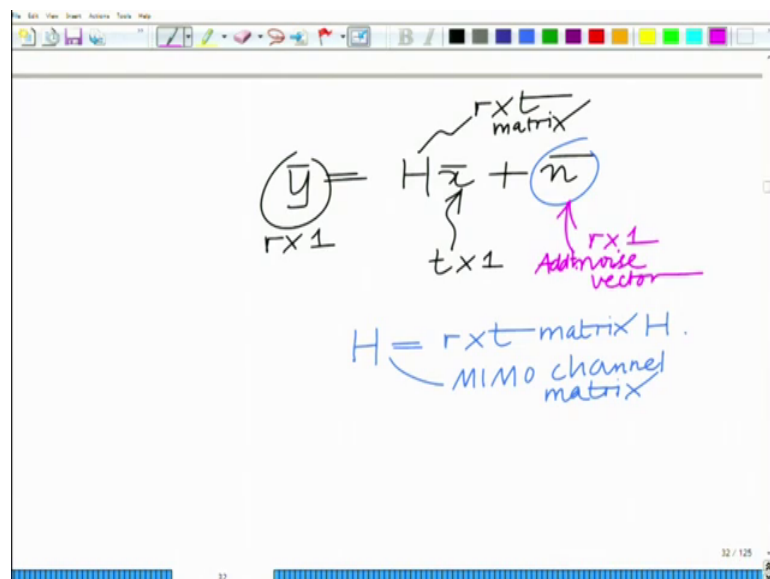 File Edit View Insert Actions Tools Help
r×t
matrix
ȳ = H x̄ + n̄
r×1
t×1
r×1
Add noise
vector
H = r×t matrix H.
MIMO channel
matrix
32 / 125
32